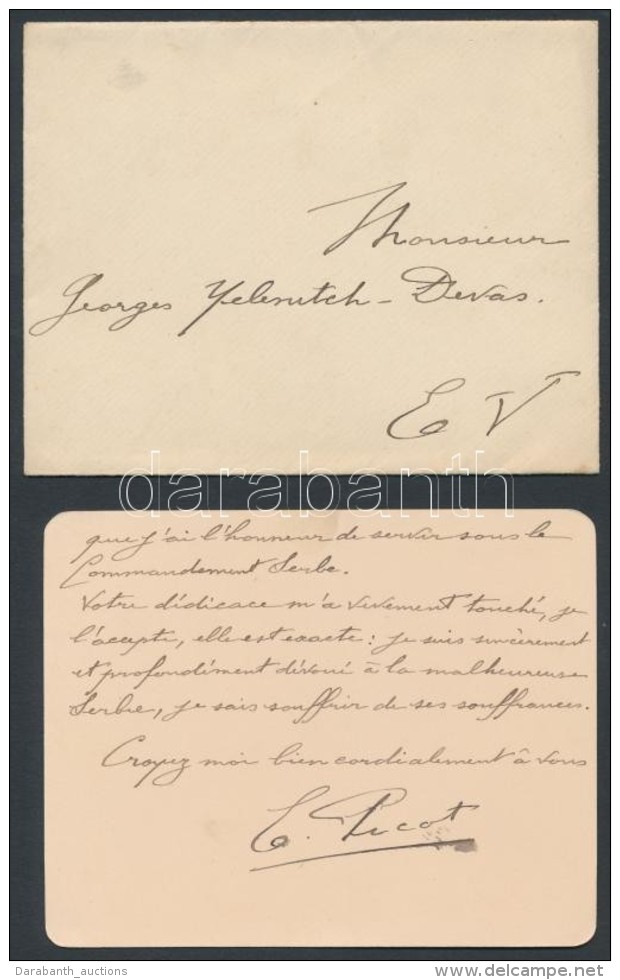 Monsieur
Georges Yelenitch - Devas.
E V
darabanth
que j'ai l'honneur de servir sous le
Commandement Serbe.
Votre dédicace m'a vivement touché, je
l'accepte, elle est exacte : je suis sincèrement
et profondément dévoué à la malheureuse
Serbie, je sais souffrir de ses souffrances.
Croyez moi bien cordialement à vous
E. Picot
Darabanth_auctions
http://www.delcampe.net